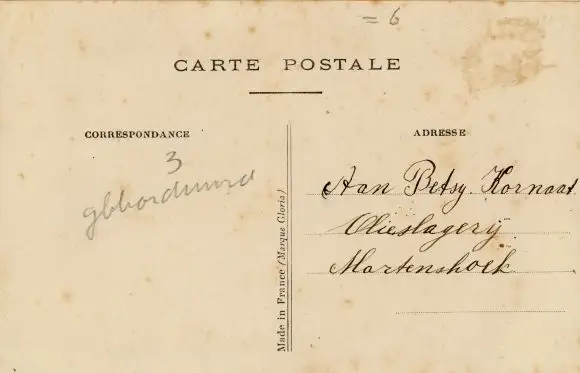 = 6
CARTE POSTALE
CORRESPONDANCE
3
geborduurd
Made in France (Marque Gloria)
ADRESSE
Aan Betsy Kornaat
Olieslagerij
Martenshoek